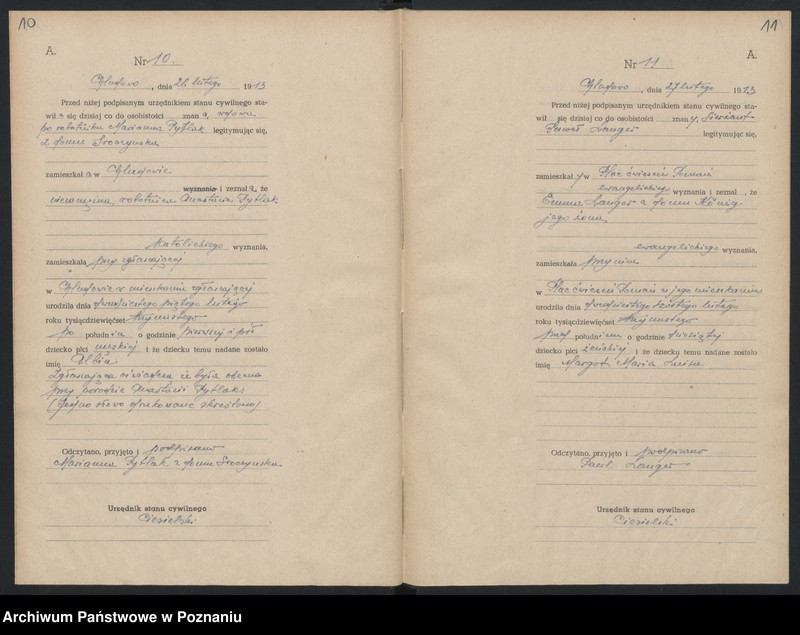 10
A.
Nr 10.
, dnia 26 lutego 1913
Przed niżej podpisanym urzędnikiem stanu cywilnego sta-
wił a się dzisiaj co do osobistości znan a, wdowa
po robotniku Marianna Pytlak legitymując się,
z domu Sroczyńska
zamieszkał a w
wyznania i zeznał a, że
niezamężna, robotnica Anastazia Pytlak
katolickiego wyznania,
zamieszkała przy zgłaszającej
w w mieszkaniu zgłaszającej
urodziła dnia dwudziestego piątego lutego
roku tysiącdziewięćset trzynastego
po południa o godzinie pierwszej i pół
dziecko płci męskiej i że dziecku temu nadane zostało
imię Albin
Zgłaszająca oświadcza iż była obecna
przy porodzie Anastazii Pytlak
(Jedno słowo drukowane skreślono)
Odczytano, przyjęto i podpisano
Marianna Pytlak z domu Sroczyńska
Urzędnik stanu cywilnego
Ciesielski
11
A.
Nr 11
, dnia 27 lutego 1913
Przed niżej podpisanym urzędnikiem stanu cywilnego sta-
wił się dzisiaj co do osobistości znan y, sierżant
Paweł Langer legitymując się,
zamieszkał y w Plac ćwiczeń Poznań
ewangelickiej wyznania i zeznał , że
Emma Langer z domu König
jego żona,
ewangelickiego wyznania,
zamieszkała przy nim
w Plac ćwiczeń Poznań w jego mieszkaniu
urodziła dnia dwudziestego szóstego lutego
roku tysiącdziewięćset trzynastego
przed południem o godzinie dziesiątej
dziecko płci żeńskiej i że dziecku temu nadane zostało
imię Margot Maria Luise
Odczytano, przyjęto i podpisano
Paul Langer
Urzędnik stanu cywilnego
Ciesielski
Archiwum Państwowe w Poznaniu